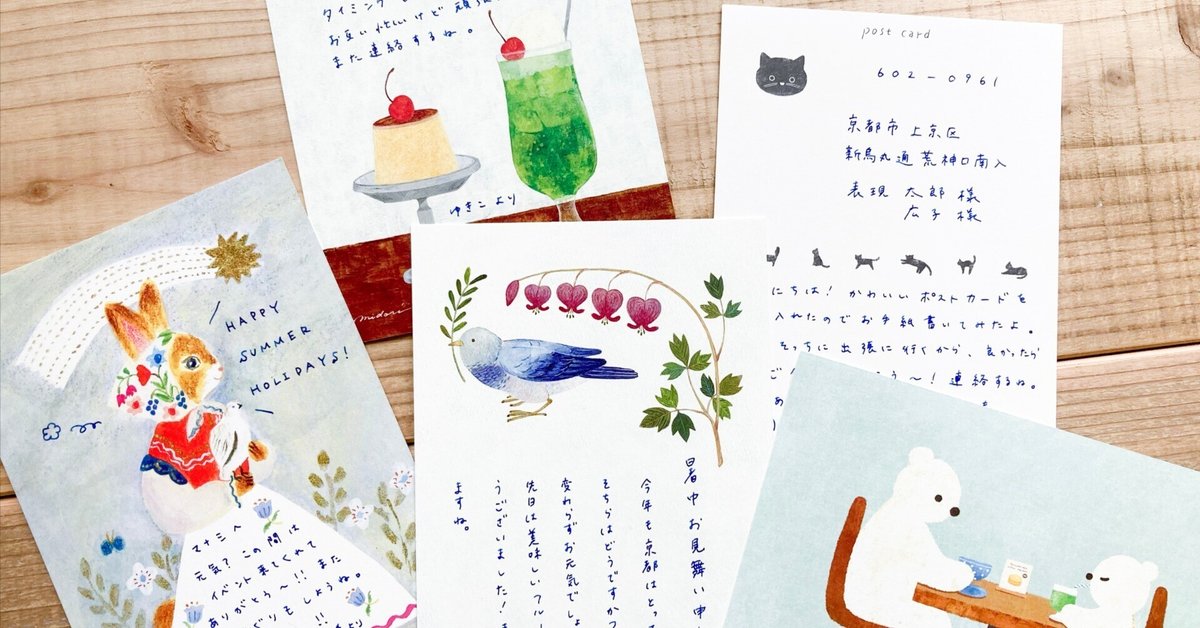 タイミング
お互い忙しいけど頑
また連絡するね。
ゆきこより
midori
post card
602-0961
京都市 上京区
新烏丸通 荒神口南入
表現 太郎 様
広子 様
にちは! かわいい ポストカードを
入れたのでお手紙書いてみたよ。
そっちに 出張に 行くから、良かったら
う〜! 連絡するね。
HAPPY
SUMMER
HOLIDAYS!
マナミへ
元気? この間は
イベント 来てくれて
ありがとう〜!! また
ぐりもしようね。
!!
より
暑中お見舞い申
今年も京都はとっ
そちらはどうですか
変わらずお元気でしょ
先日は美味しいフルー
うございました!
ますね。